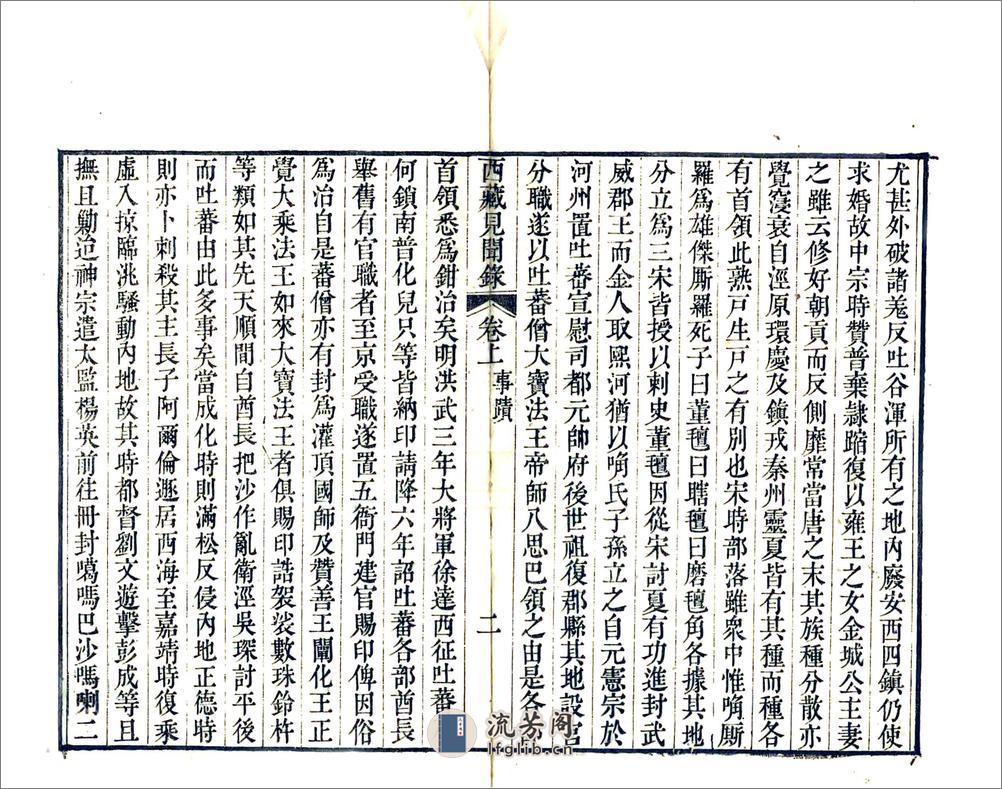 尤甚外破諸羌反吐谷渾所有之地內廢安西四鎮仍使
求婚故中宗時贊普棄隸蹜復以雍王之女金城公主妻
之雖云修好朝貢而反側靡常當唐之末其族種分散亦
覺寖衰自涇原環慶及鎮戎秦州靈夏皆有其種而種各
有首領此熟戸生戸之有別也宋時部落雖衆中惟唃厮
羅爲雄傑厮羅死子曰董氊曰瞎氊曰磨氊角各據其地
分立爲三宋皆授以刺史董氊因從宋討夏有功進封武
威郡王而金人取熙河猶以唃氏子孫立之自元憲宗於
河州置吐蕃宣慰司都元帥府後世祖復郡縣其地設官
分職遂以吐蕃僧大寶法王帝師八思巴領之由是各
西藏見聞錄 卷上 事蹟 二
首領悉爲鉗治矣明洪武三年大將軍徐達西征吐蕃
何鎖南普化兒只等皆納印請降六年詔吐蕃各部酋長
舉舊有官職者至京受職遂置五衙門建官賜印俾因俗
爲治自是蕃僧亦有封爲灌頂國師及贊善王闡化王正
覺大乘法王如來大寶法王者俱賜印誥袈裟數珠鈴杵
等類如其先天順間自酋長把沙作亂衛涇吳琛討平後
而吐蕃由此多事矣當成化時則滿松反侵內地正德時
則亦卜刺殺其主長子阿爾倫遯居西海至嘉靖時復乘
虛入掠臨洮騷動內地故其時都督劉文遊擊彭成等且
撫且勦迨神宗遣太監楊英前往冊封噶嗎巴沙嗎喇二
流芳阁
lfglib.cn